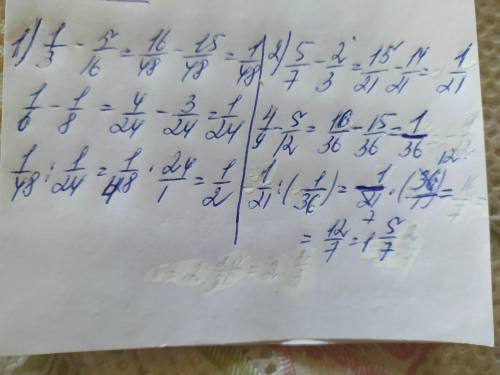 1) 1/3 - 5/16 = 16/48 - 15/48 = 1/48
1/6 - 1/8 = 4/24 - 3/24 = 1/24
1/48 : 1/24 = 1/48 · 24/1 = 1/2
2) 5/7 - 2/3 = 15/21 - 14/21 = 1/21
4/9 - 5/12 = 16/36 - 15/36 = 1/36
1/21 : (1/36) = 1/21 · (36/1) =
= 12/7 = 1 5/7